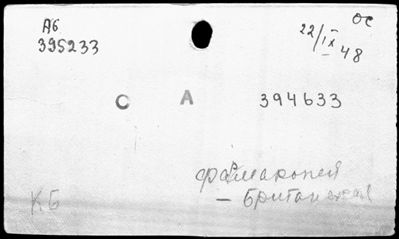 Аб
395233
ОС
22/IX
48
С А
394633
Фармакопея
– Британская
КБ